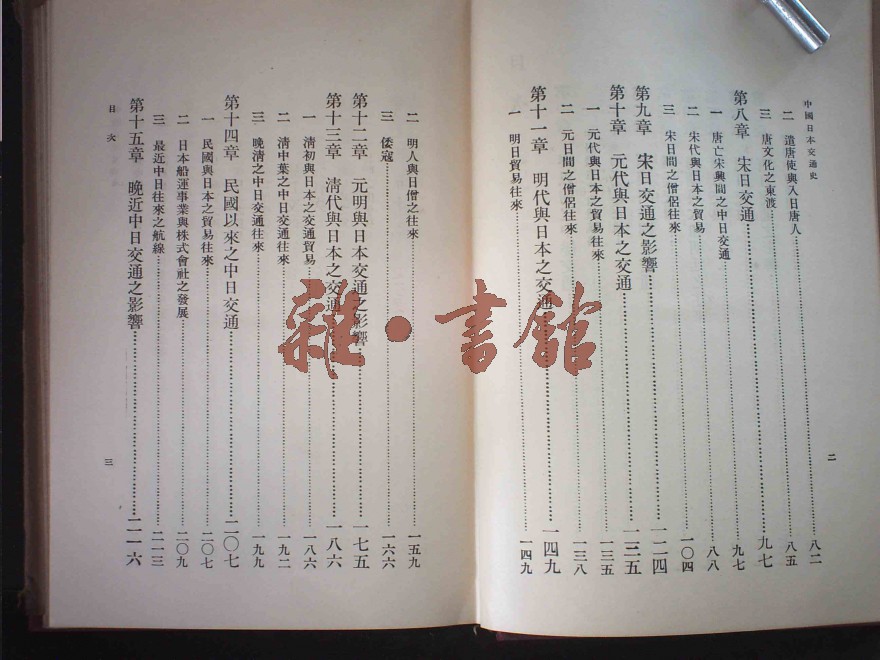 中國日本交通史
二 遣唐使與入日唐人……八二
三 唐文化之東渡……八五
第八章 宋日交通……九七
一 唐亡宋興間之中日交通……九七
二 宋代與日本之貿易……八八
三 宋日間之僧侶往來……一〇四
第九章 宋日交通之影響……一二四
第十章 元代與日本之交通……一三五
一 元代與日本之貿易……一三五
二 元日間之僧侶往來……一三八
第十一章 明代與日本之交通……一四九
一 明日貿易往來……一四九
二
二 明人與日僧之往來……一五九
三 倭寇……一六六
第十二章 元明與日本交通之影響……一七五
第十三章 清代與日本之交通……一八六
一 清初與日本之交通貿易……一八六
二 清中葉之中日交通往來……一九二
三 晚清之中日交通往來……一九九
第十四章 民國以來之中日交通……二〇七
一 民國與日本之貿易往來……二〇七
二 日本船運事業與株式會社之發展……二〇九
三 最近中日往來之航線……二一三
第十五章 晚近中日交通之影響……二一六
目次
三
雜·書館